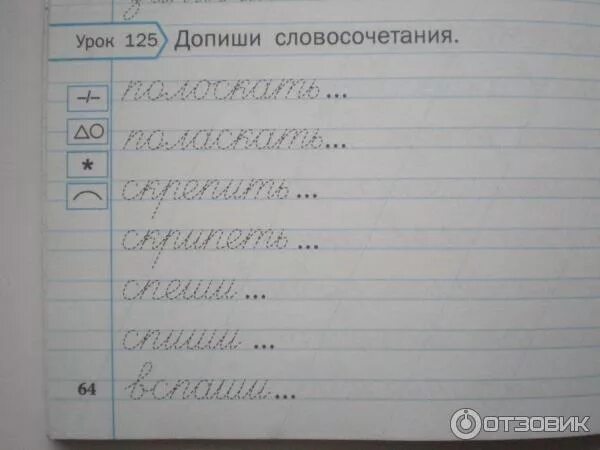 Урок 125 Допиши словосочетания.
полоскать...
поласкать...
скрепить...
скрипеть...
спеши...
спиши...
вспаши...
64
ОТЗОВИК